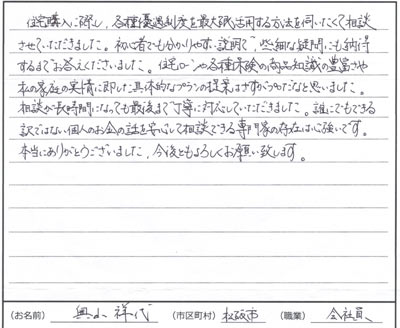 住宅購入に際し、各種優遇制度を最大限活用する方法を伺いたくて相談
させていただきました。初心者でも分かりやすい説明で、些細な疑問にも納得
するまでお答えくださいました。住宅ローンや各種保険の商品知識の豊富さや
私の家庭の実情に即した具体的なプランの提案はさすがプロだなと思いました。
相談が長時間になっても最後まで丁寧に対応していただきました。誰にでもできる
訳ではない個人のお金の話を安心して相談できる専門家の存在は心強いです。
本当にありがとうございました。今後ともよろしくお願い致します。
(お名前) 奥山 祥代 (市区町村) 松阪市 (職業) 会社員